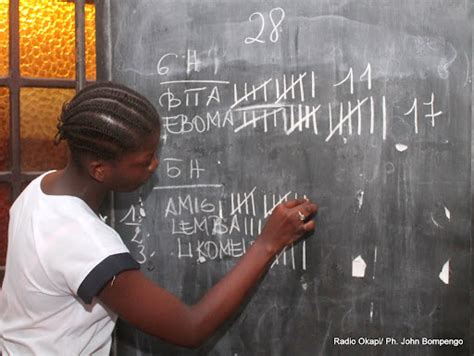 28
6 H
ВПА 11
EBOMA 17
5 H
1. AMIG
2. LEMBA
3. LIKOME
Radio Okapi/ Ph. John Bompengo